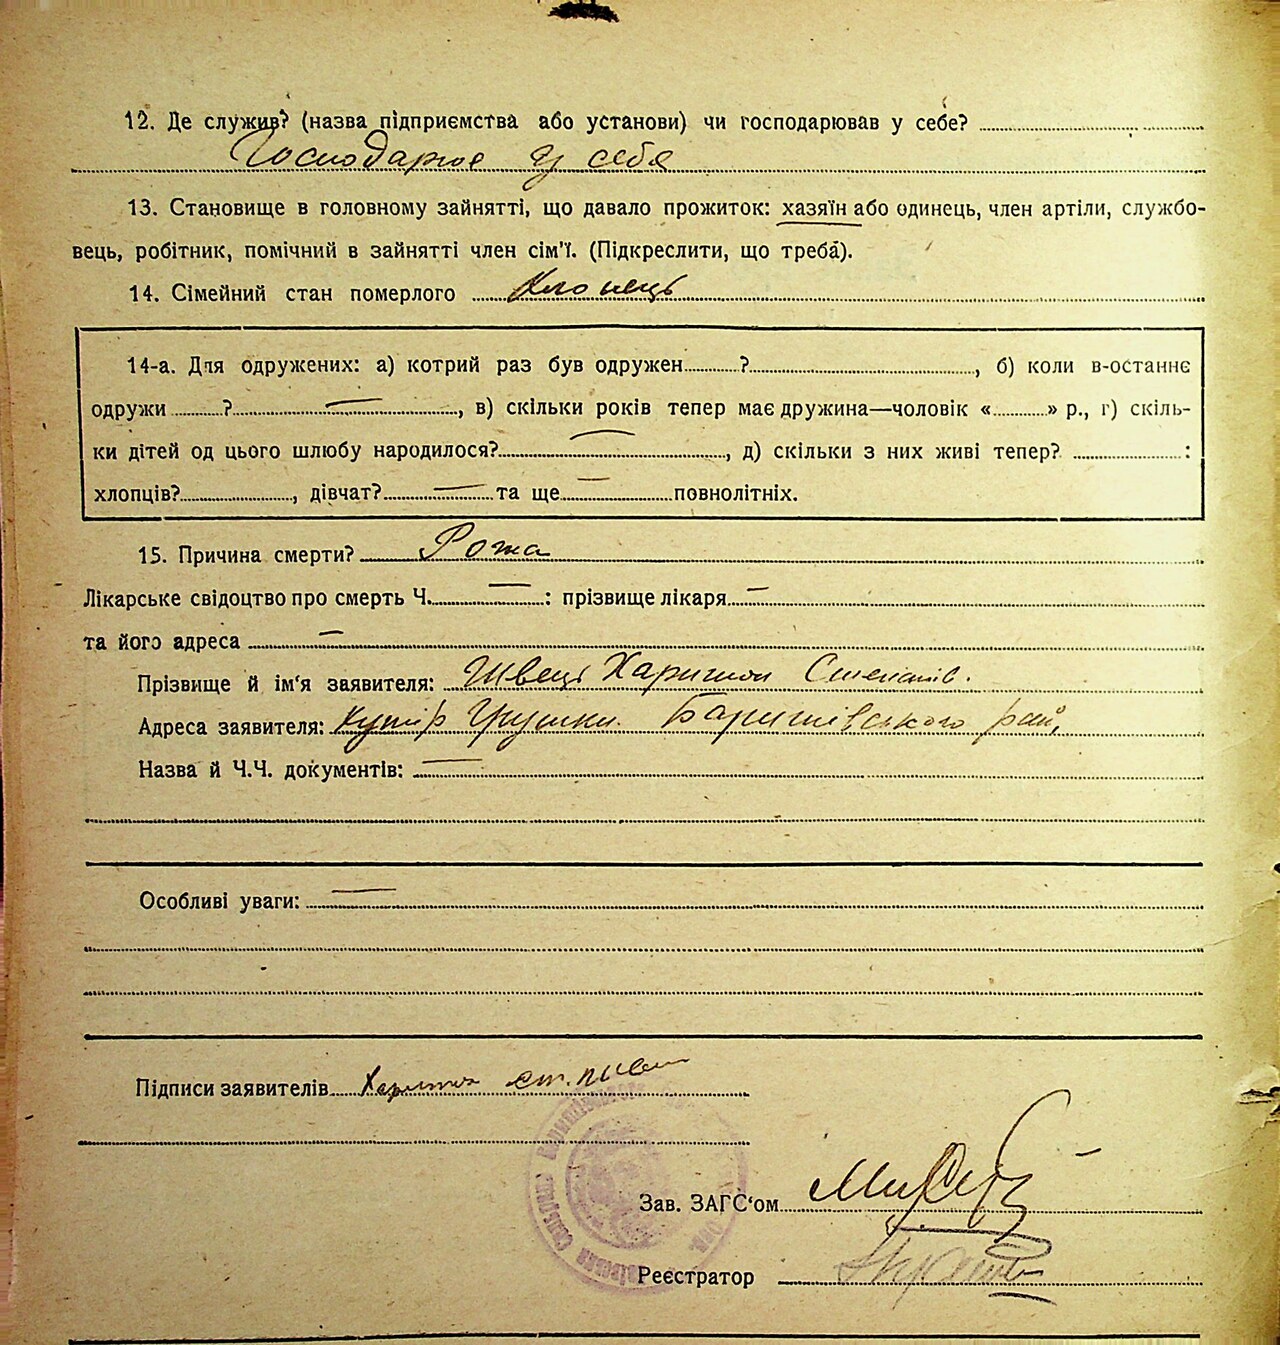 12. Де служив? (назва підприємства або установи) чи господарював у себе?
Господарює у себе
13. Становище в головному зайнятті, що давало прожиток: хазяїн або одинець, член артіли, службо-
вець, робітник, помічний в зайнятті член сім'ї. (Підкреслити, що треба).
14. Сімейний стан померлого Хлопець
14-а. Для одружених: а) котрий раз був одружен ? , б) коли в-останнє
одружи ? , в) скільки років тепер має дружина—чоловік « » р., г) скіль-
ки дітей од цього шлюбу народилося? , д) скільки з них живі тепер? :
хлопців? , дівчат? — та ще — повнолітніх.
15. Причина смерти? Рожа
Лікарське свідоцтво про смерть Ч. — : прізвище лікаря —
та його адреса —
Прізвище й ім'я заявителя: Швець Харитон Степанів.
Адреса заявителя: Хутір Грушки. Баришівського рай,
Назва й Ч.Ч. документів: —
Особливі уваги: —
Підписи заявителів Харитон ст.
Зав. ЗАГС'ом
Реєстратор